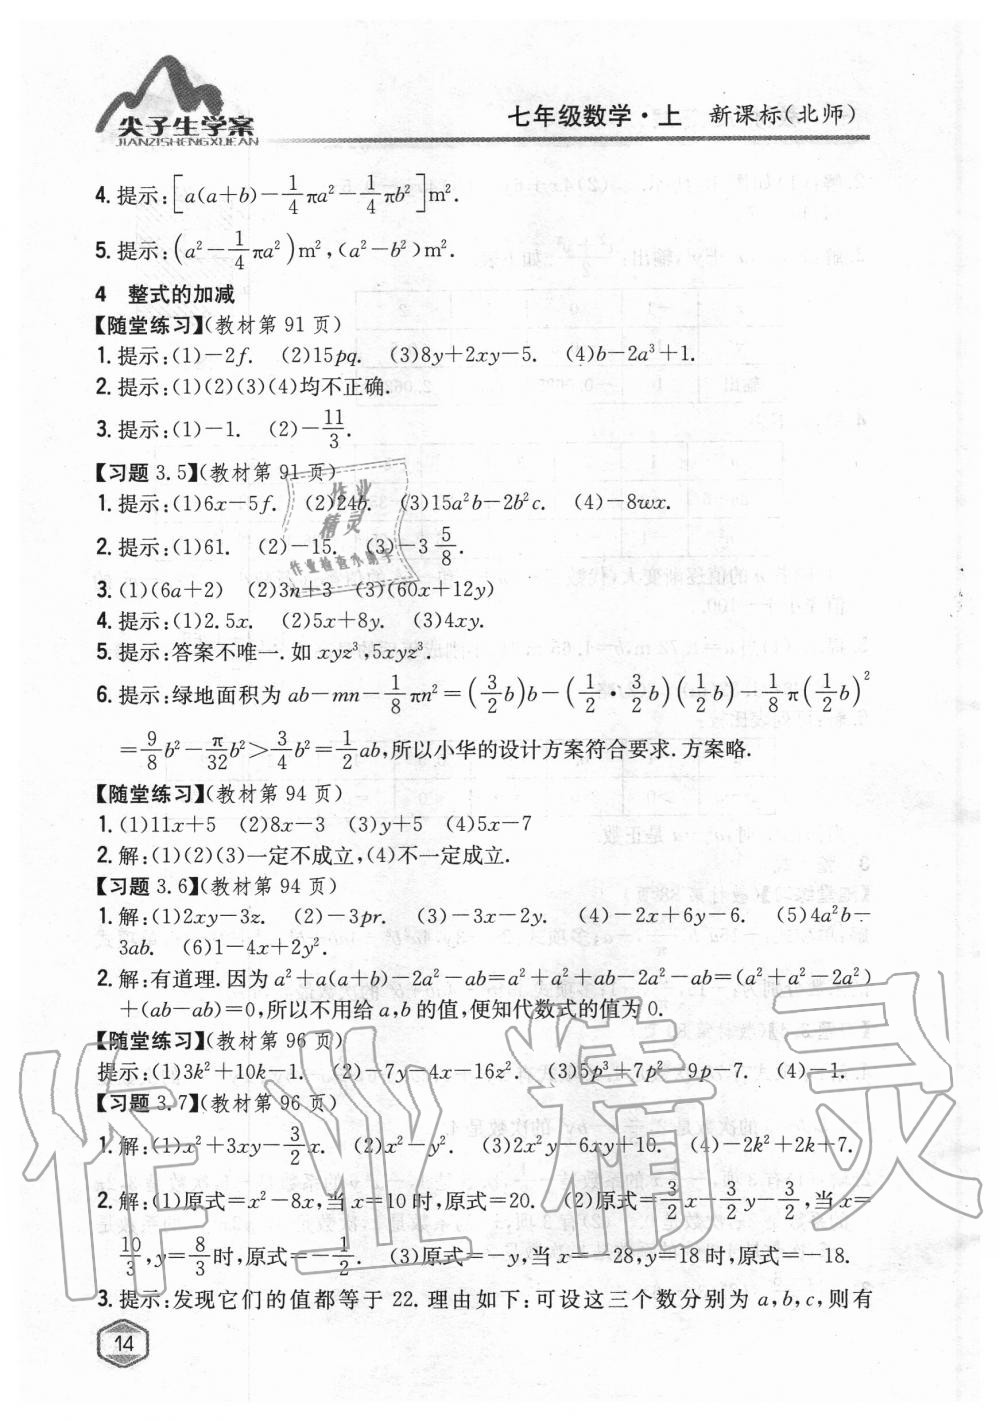 尖子生学案
JIANZISHENGXUEAN
七年级数学·上 新课标(北师)
4.提示:[a(a+b)-1/4πa²-1/4πb²]m².
5.提示:(a²-1/4πa²)m²,(a²-b²)m².
4 整式的加减
【随堂练习】(教材第 91 页)
1.提示:(1)-2f. (2)15pq. (3)8y+2xy-5. (4)b-2a³+1.
2.提示:(1)(2)(3)(4)均不正确.
3.提示:(1)-1. (2)-11/3.
【习题 3.5】(教材第 91 页)
1.提示:(1)6x-5f. (2)24b. (3)15a²b-2b²c. (4)-8wx.
2.提示:(1)61. (2)-15. (3)-3 5/8.
3.(1)(6a+2) (2)3n+3 (3)(60x+12y)
4.提示:(1)2.5x. (2)5x+8y. (3)4xy.
5.提示:答案不唯一.如 xyz³,5xyz³.
6.提示:绿地面积为 ab-mn-1/8πn²=(3/2b)b-(1/2·3/2b)(1/2b)-1/8π(1/2b)²
=9/8b²-π/32b²>3/4b²=1/2ab,所以小华的设计方案符合要求.方案略.
【随堂练习】(教材第 94 页)
1.(1)11x+5 (2)8x-3 (3)y+5 (4)5x-7
2.解:(1)(2)(3)一定不成立,(4)不一定成立.
【习题 3.6】(教材第 94 页)
1.解:(1)2xy-3z. (2)-3pr. (3)-3x-2y. (4)-2x+6y-6. (5)4a²b-
3ab. (6)1-4x+2y².
2.解:有道理.因为 a²+a(a+b)-2a²-ab=a²+a²+ab-2a²-ab=(a²+a²-2a²)
+(ab-ab)=0,所以不用给 a,b 的值,便知代数式的值为 0.
【随堂练习】(教材第 96 页)
提示:(1)3k²+10k-1. (2)-7y-4x-16z². (3)5p³+7p²-9p-7. (4)-1.
【习题 3.7】(教材第 96 页)
1.解:(1)x²+3xy-3/2x. (2)x²-y². (3)2x²y-6xy+10. (4)-2k²+2k+7.
2.解:(1)原式=x²-8x,当 x=10 时,原式=20. (2)原式=3/2x-3/2y-3/2,当 x=
10/3,y=8/3时,原式=-1/2. (3)原式=-y,当 x=-28,y=18 时,原式=-18.
3.提示:发现它们的值都等于 22.理由如下:可设这三个数分别为 a,b,c,则有
14
作业
精灵
作业检查小助手
作业精灵